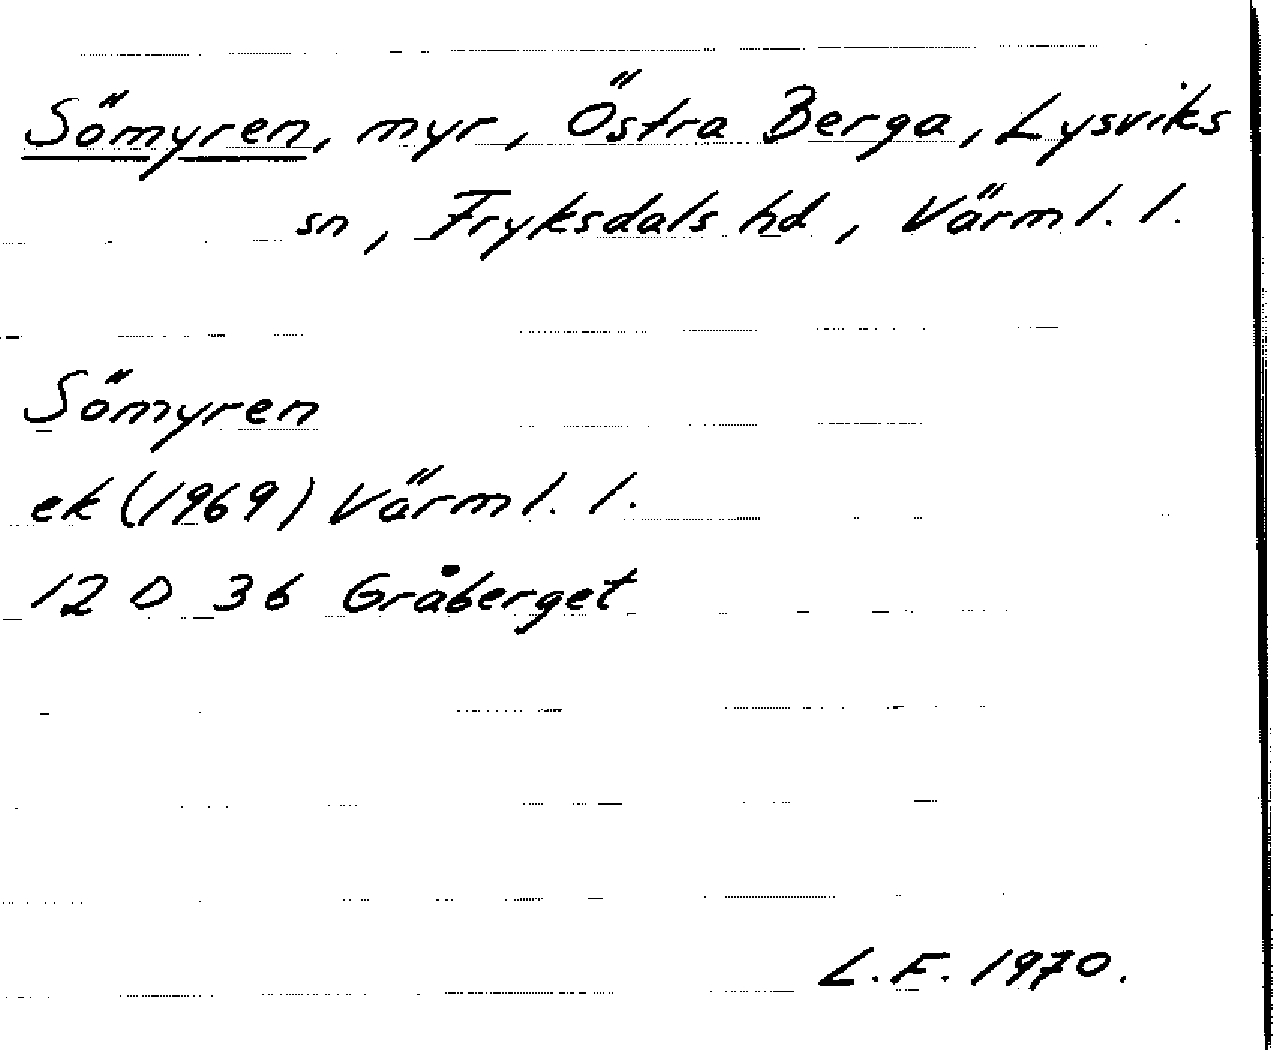 Sömyren, myr, Östra Berga, Lysviks
sn, Fryksdals hd, Värml. l.
Sömyren
ek (1969) Värml. l.
12 D 36 Gråberget
L.F. 1970.